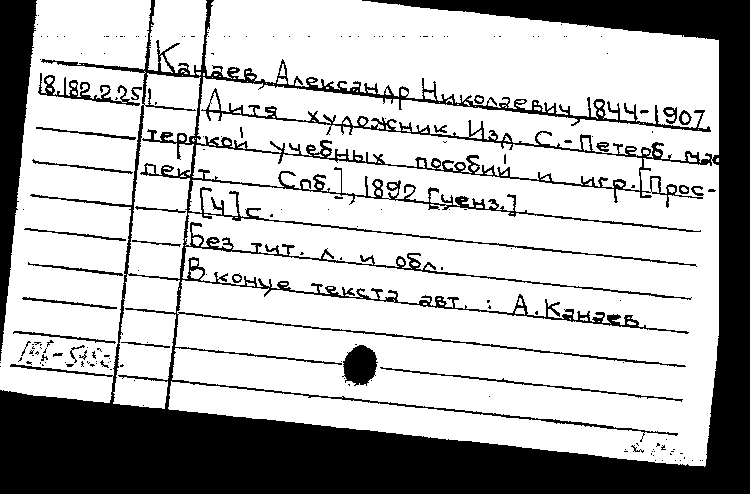 Канаев, Александр Николаевич, 1844-1907.
18.182.2.251. Дитя художник. Изд. С.-Петерб. мас
терской учебных пособий и игр. [Прос-
пект. Спб.], 1892 [ценз.].
[4] с.
Без тит. л. и обл.
В конце текста авт. : А. Канаев.